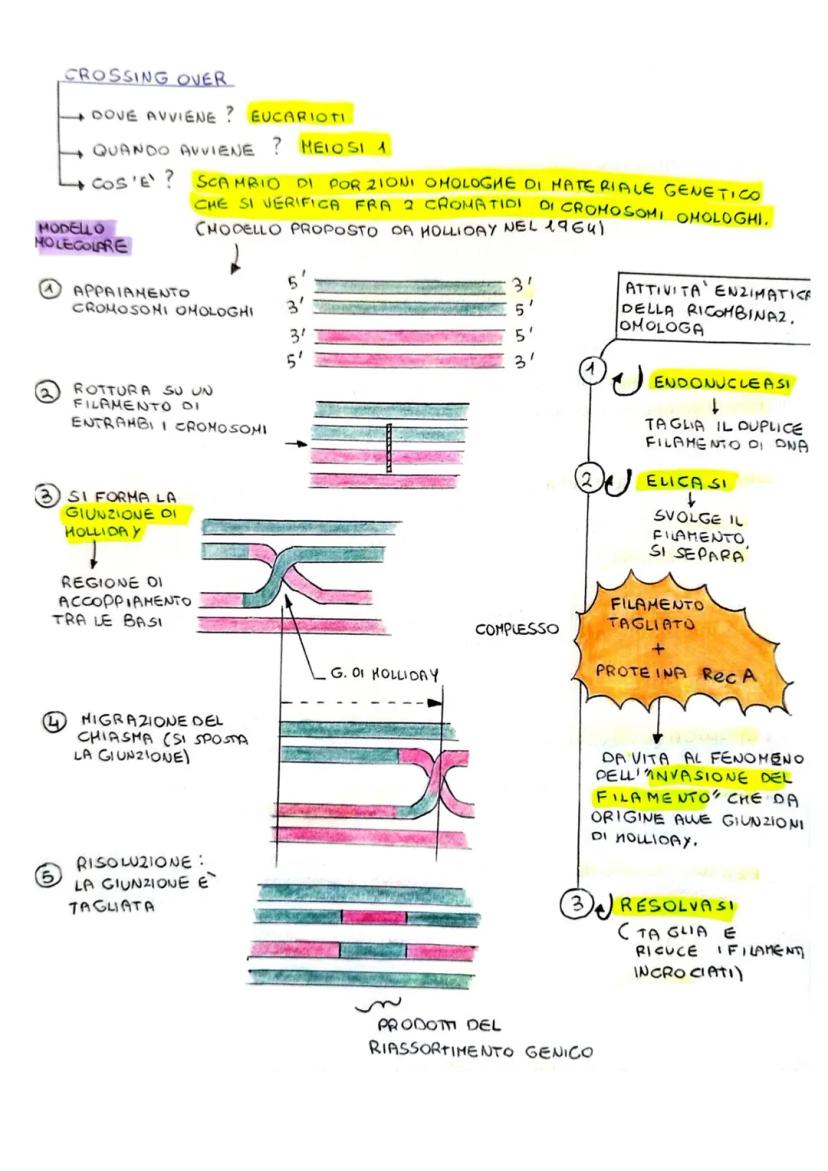 CROSSING OVER
DOVE AVVIENE? EUCARIOTI
QUANDO AVVIENE? MEIOSI 1
COS'E'? SCAMBIO DI PORZIONI OMOLOGHE DI MATERIALE GENETICO
CHE SI VERIFICA FRA 2 CROMATIDI DI CROMOSOMI OMOLOGHI.
(MODELLO PROPOSTO DA HOLLIDAY NEL 1964)
MODELLO
MOLECOLARE
1 APPAIAMENTO
CROMOSOMI OMOLOGHI
5' 3'
3' 5'
3' 5'
5' 3'
2 ROTTURA SU UN
FILAMENTO DI
ENTRAMBI I CROMOSOMI
3 SI FORMA LA
GIUNZIONE DI
HOLLIDAY
REGIONE DI
ACCOPPIAMENTO
TRA LE BASI
G. DI HOLLIDAY
4 MIGRAZIONE DEL
CHIASMA (SI SPOSTA
LA GIUNZIONE)
5 RISOLUZIONE:
LA GIUNZIONE E'
TAGLIATA
PRODOTTI DEL
RIASSORTIMENTO GENICO
ATTIVITA' ENZIMATICA
DELLA RICOMBINAZ.
OMOLOGA
1 ENDONUCLEASI
TAGLIA IL DUPLICE
FILAMENTO DI DNA
2 ELICASI
SVOLGE IL
FILAMENTO,
SI SEPARA
COMPLESSO
FILAMENTO
TAGLIATO
+
PROTEINA RecA
DA VITA AL FENOMENO
DELL'"INVASIONE DEL
FILAMENTO" CHE DA
ORIGINE ALLE GIUNZIONI
DI HOLLIDAY.
3 RESOLVASI
(TAGLIA E
RICUCE I FILAMENTI
INCROCIATI)